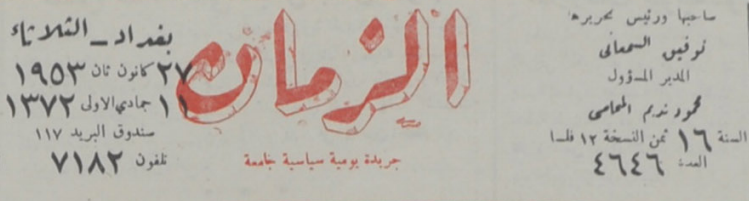 صاحبها ورئيس تحريرها
توفيق السمعاني
المدير المسؤول
محمود نديم المحامي
السنة ١٦ ثمن النسخة ١٢ فلسا
العدد ٤٦٤٦
الزمان
جريدة يومية سياسية جامعة
بغداد - الثلاثاء
٢٧ كانون ثان ١٩٥٣
١١ جمادي الاولى ١٣٧٢
صندوق البريد ١١٧
تلفون ٧١٨٢